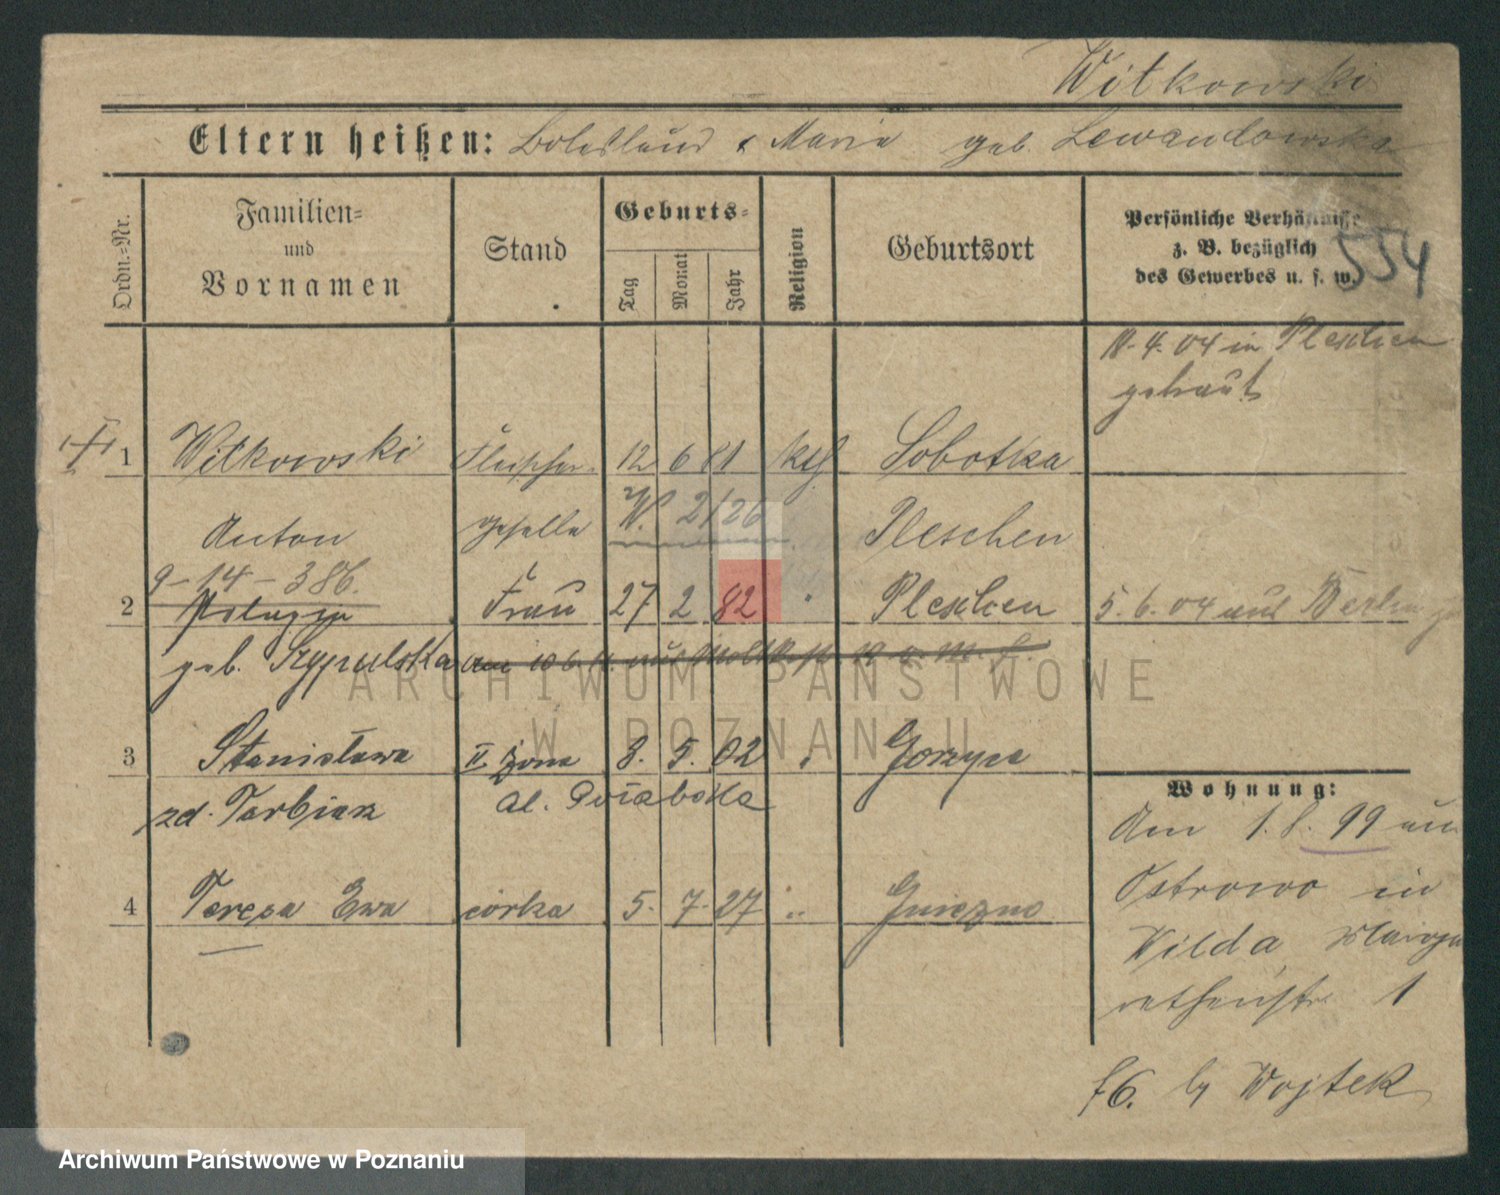 Witkowski
Eltern heißen: Boleslaus & Maria geb. Lewandowska
Ordn.-Nr.
Familien-
und
Vornamen
Stand
Geburts-
Tag
Monat
Jahr
Religion
Geburtsort
Persönliche Verhältnisse
z. B. bezüglich
des Gewerbes u. s. w.
554
4. 04 in Pleschen
getraut
1 Witkowski Fleischer- 12 6 81 kth Sobotka
Anton geselle W. 2/26 Pleschen
9-14-386.
2 Pelagja Frau 27 2 82 Pleschen 5. 6. 04 aus Berlin
geb. Szypulska
3 Stanisława II żona 8. 5. 02 Gorzyce
zd. Tarbiak
4 Teresa Ewa córka 5. 7. 27 Gniezno
Wohnung:
Am 1. 8. 99 aus
Ostrowo in
Wilda Marga
rethenstr. 1
b/ Wojtek
ARCHIWUM PAŃSTWOWE
W POZNANIU
Archiwum Państwowe w Poznaniu